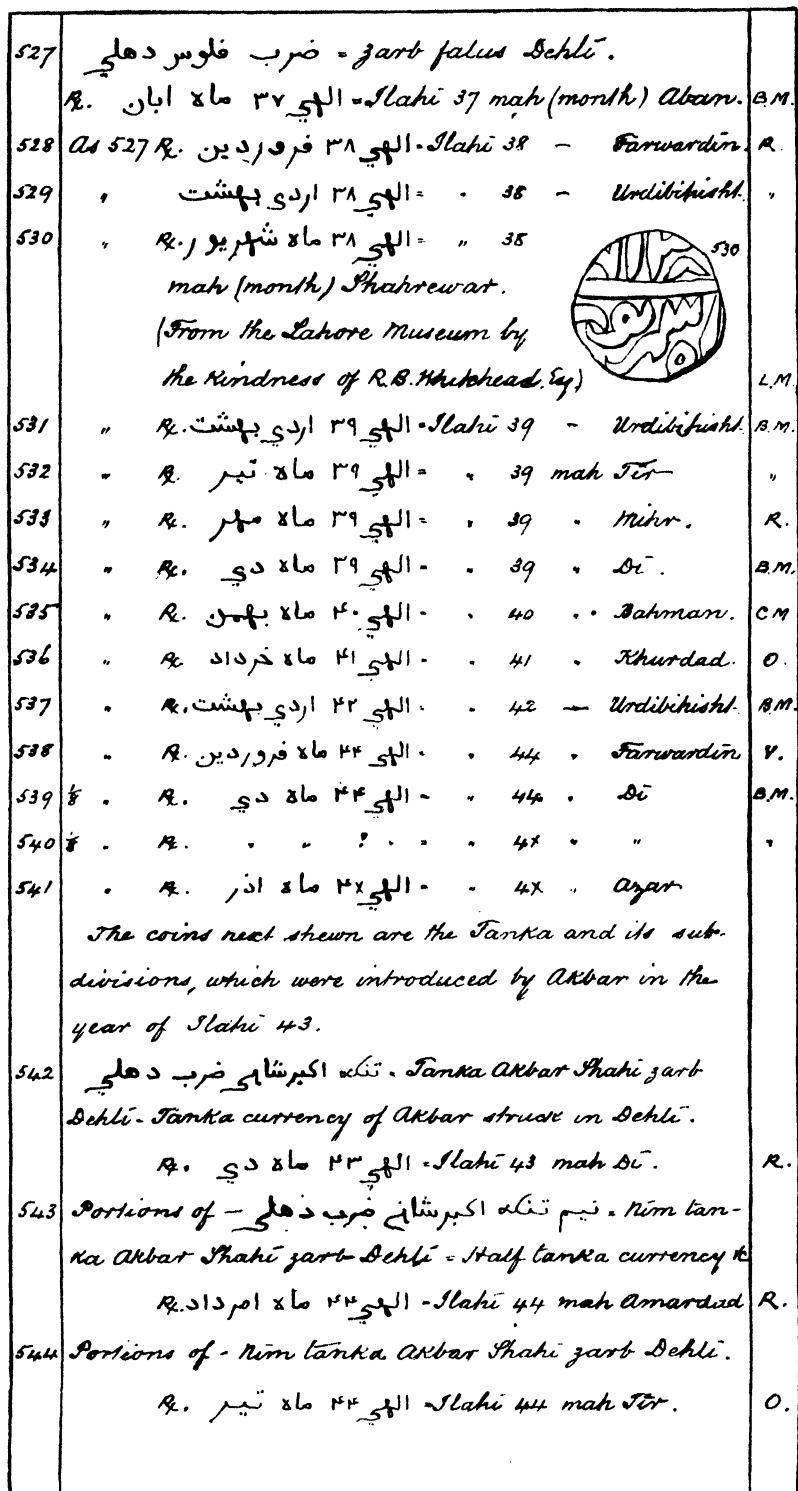 527 ضرب فلوس دهلي = zarb falus Dehlī.
R. الهي ٣٧ ماه ابان = Ilahi 37 mah (month) Aban. B.M.
528 As 527 R. الهي ٣٨ فروردين = Ilahi 38 – Farwardin. R.
529 " الهي ٣٨ اردي بهشت = " 38 – Urdibihisht. "
530 " R. الهي ٣٨ ماه شهريور = " 38
530
mah (month) Shahrewar.
(From the Lahore Museum by
the kindness of R.B. Whitehead, Esq.) L.M.
531 " R. الهي ٣٩ اردي بهشت = Ilahi 39 – Urdibihisht. B.M.
532 " R. الهي ٣٩ ماه تير = " 39 mah Tīr "
533 " R. الهي ٣٩ ماه مهر = " 39 " Mihr. R.
534 " R. الهي ٣٩ ماه دي = " 39 " Di. B.M.
535 " R. الهي ۴٠ ماه بهمن = " 40 " Bahman. C M
536 " R. الهي ۴١ ماه خرداد = " 41 " Khurdad. O.
537 " R. الهي ۴٢ اردي بهشت = " 42 – Urdibihisht. B.M.
538 " R. الهي ۴۴ ماه فروردين = " 44 " Farwardin V.
539 ⅛ " R. الهي ۴۴ ماه دي = " 44 " Di B.M.
540 ⅛ " R. " " ? " = " 4x " " "
541 " R. الهي ۴x ماه اذر = " 4x " Azar "
The coins next shewn are the Tanka and its sub-
divisions, which were introduced by Akbar in the
year of Ilahi 43.
542 تنكه اكبرشاهي ضرب دهلي = Tanka Akbar Shahi zarb
Dehlī - Tanka currency of Akbar struck in Dehlī.
R. الهي ۴٣ ماه دي = Ilahi 43 mah Di. R.
543 Portions of – نيم تنكه اكبرشاهي ضرب دهلي = Nim tan-
ka Akbar Shahi zarb Dehlī = Half tanka currency &c
R. الهي ۴۴ ماه امرداد = Ilahi 44 mah Amardad R.
544 Portions of - Nim tanka Akbar Shahi zarb Dehlī.
R. الهي ۴۴ ماه تير = Ilahi 44 mah Tīr. O.